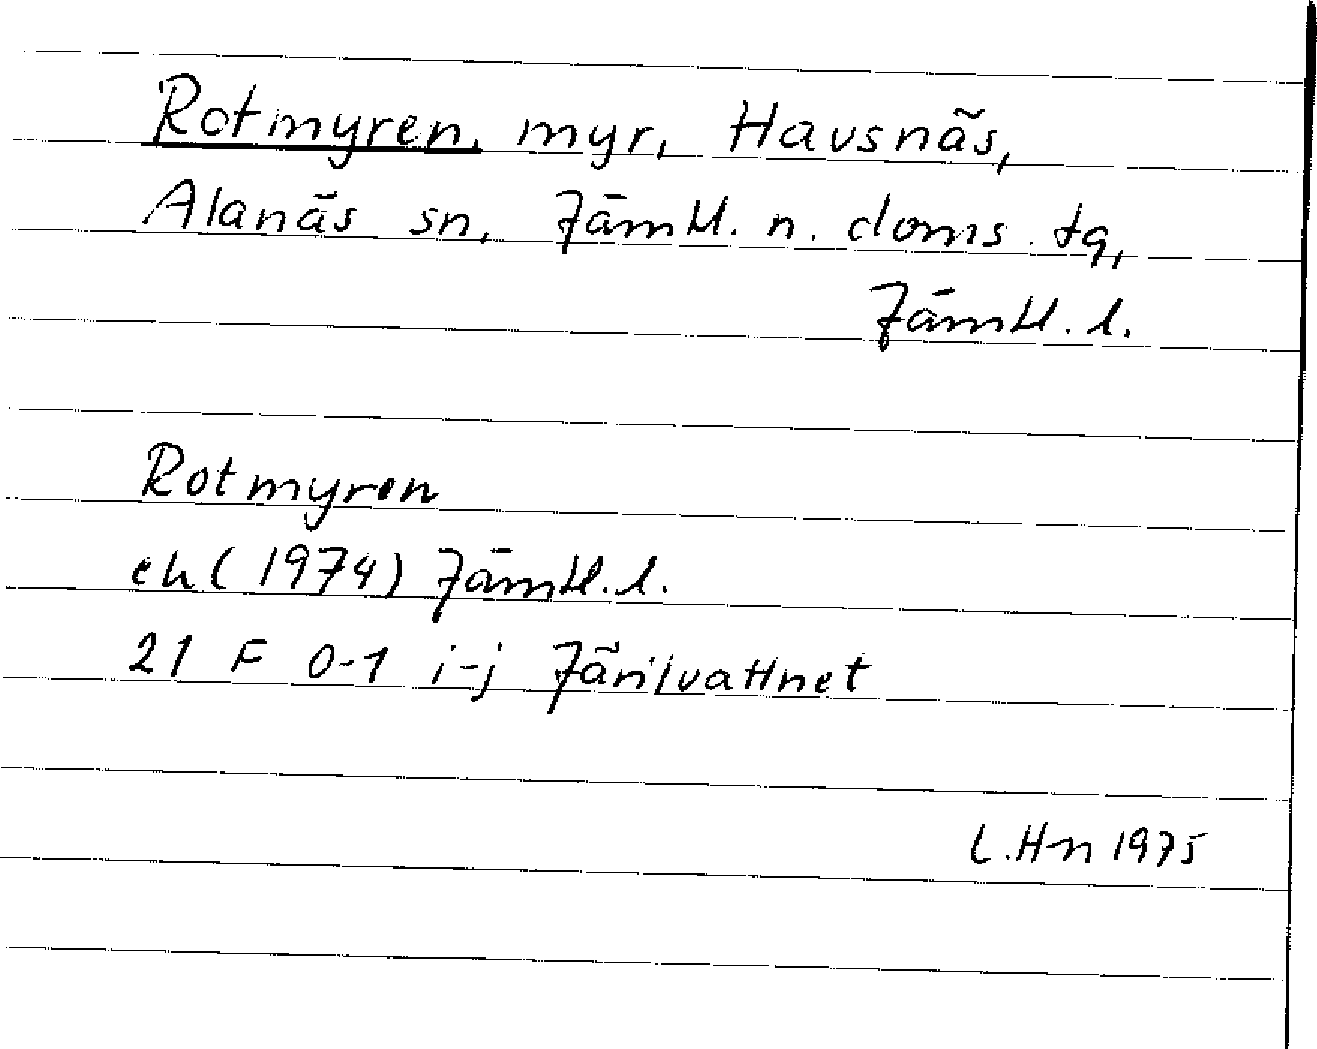 Rotmyren, myr, Havsnäs,
Alanäs sn, Jämtl. n. doms. tg,
Jämtl. l.
Rotmyren
ek (1974) Jämtl. l.
21 F 0-1 i-j Järilvattnet
L. Hn 1975